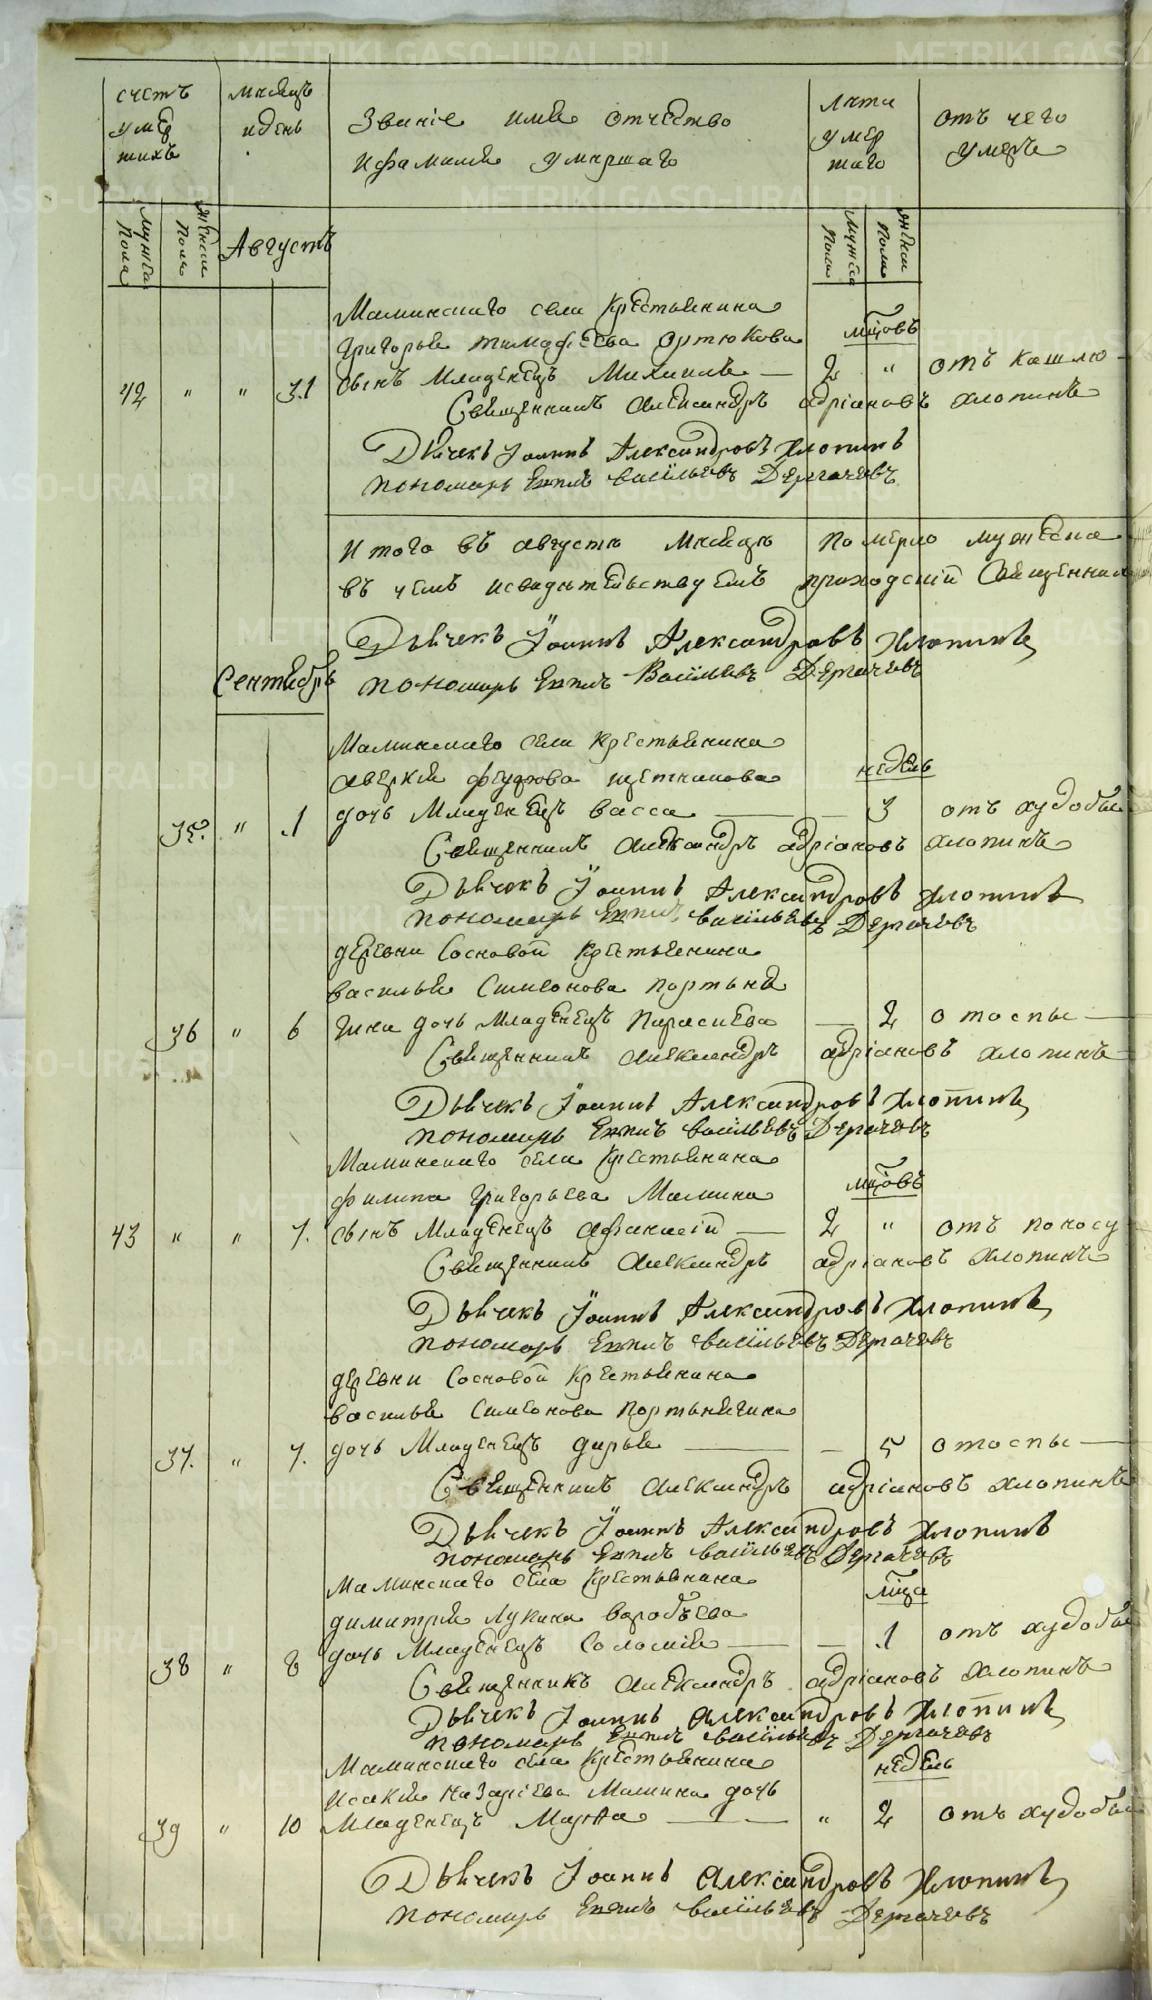 METRIKI.GASO-URAL.RU
счетъ умер шихъ
мѣсяцъ и день
Званіе имя отчество
и фамилія умершаго
лѣта умер шаго
отъ чего умерли
Мужеска Пола
Женска Пола
Августъ
Мужеска Пола
Женска Пола
Маминскаго села Крестьянина
Григорья тимофеева Ортюкова мцовъ
42 " " 31 сынъ Младенецъ Михаилъ — 2 " отъ кашлю
Священникъ Александръ адріановъ хлопинъ
Дьячекъ Іоаннъ Александровъ Хлопинъ
пономарь васильевъ Дергачевъ
Итого въ августѣ мѣсяцѣ померло мужеска
въ чемъ и свидѣтельствуемъ приходскій Священник
Дьячекъ Іоаннъ Александровъ Хлопинъ
Сентябрь
пономарь Васильевъ Дергачевъ
Маминскаго села Крестьянина
аверкія щетникова недѣль
35. " 1 дочь Младенецъ васса — 3 отъ худобы
Священникъ Александръ адріановъ хлопинъ
Дьячекъ Іоаннъ Александровъ Хлопинъ
пономарь васильевъ Дергачевъ
деревни Сосновой Крестьянина
василья Симеонова портыня
36 " 6 гина дочь Младенецъ Параскева — 2 отоспы —
Священникъ Александръ адріановъ хлопинъ
Дьячекъ Іоаннъ Александровъ Хлопинъ
пономарь васильевъ Дергачевъ
Маминскаго села Крестьянина
филипа Григорьева Мамина мцовъ
43 " " 7. сынъ Младенецъ афанасій — 2 " отъ поносу
Священникъ Александръ адріановъ хлопинъ
Дьячекъ Іоаннъ Александровъ Хлопинъ
пономарь васильевъ Дергачевъ
деревни Сосновой Крестьянина
василья Симеонова Портынягина
37. " 7. дочь Младенецъ дарья — — 5 отоспы —
Священникъ Александръ адріановъ хлопинъ
Дьячекъ Іоаннъ Александровъ Хлопинъ
пономарь васильевъ Дергачевъ
Маминскаго села Крестьянина мца
димитрія Лукина воробьева
38 " 8 дочь Младенецъ Соломія — — 1 отъ худобы
Священникъ Александръ адріановъ хлопинъ
Дьячекъ Іоаннъ александровъ Хлопинъ
пономарь васильевъ Дергачевъ
Маминскаго села Крестьянина недѣль
Исакія Назарьева Мамина дочь
39 " 10 Младенецъ Марѳа — " 2 отъ худобы
Дьячекъ Іоаннъ александровъ Хлопинъ
пономарь васильевъ Дергачевъ